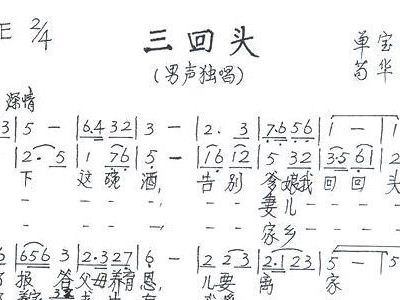 E 2/4
三回头
(男声独唱)
单宝
苟华
深情
3 | 5 - | 6.4 32 | 3 - | 2. 3 | 7.6 56 | 1 - | 1
| 2. 5 | 1 76 | 5 - | 16 12 | 5 32 | 3.5 61 | 2
下 这碗 酒, 告别 爹娘我 回回头
- - - - - - 妻儿 - -
- - - - - - 家乡 - -
6 | 656 3 | 2.327 | 6 - | 2 23 | 2.123 | 5 - | 5
报 答父母养育恩, 儿要 离 家